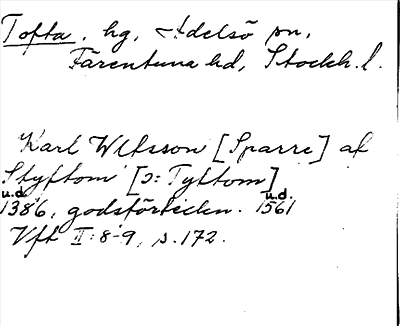 Tofta. hg, Adelsö sn,
Färentuna hd, Stockh. l.
Karl Ulfsson [Sparre] af
Styftom [ɔ: Tyftom]
u.d. u.d.
1386, godsförteckn. 1561
Vft II:8-9, s.172.